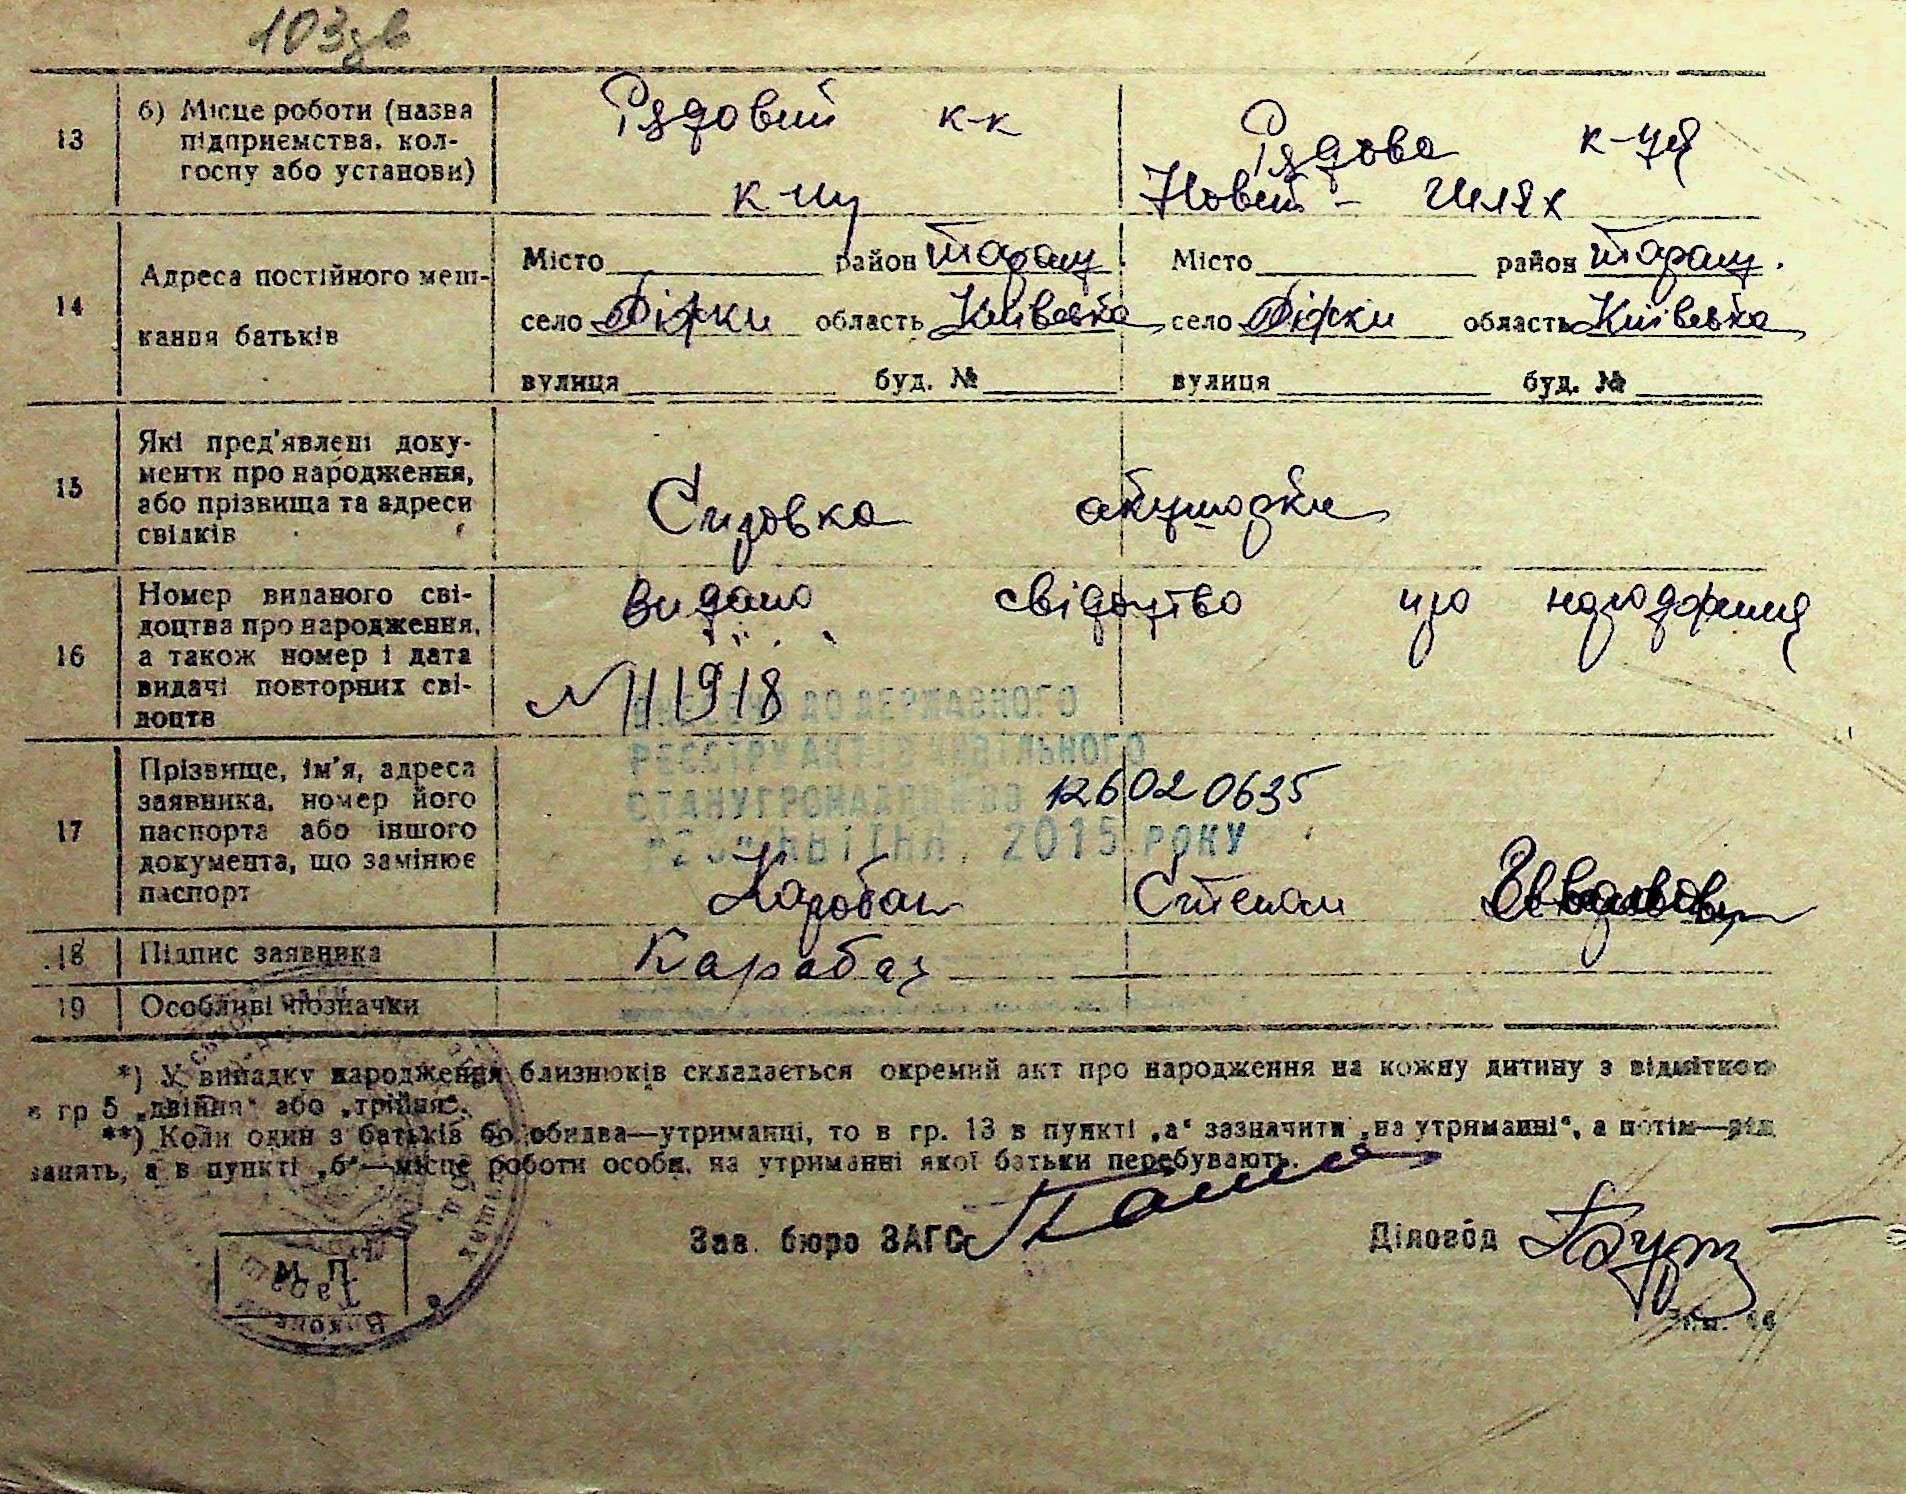 103 зв
13
б) Місце роботи (назва
підприємства, кол-
госпу або установи)
Рядовий к-к
к-пу
Рядова к-ця
Новий - Шлях
14
Адреса постійного меш-
кання батьків
Місто район Таращ.
село Ріжки область Київська
вулиця буд. №
Місто район Таращ.
село Ріжки область Київська
вулиця буд. №
15
Які пред'явлені доку-
менти про народження,
або прізвища та адреси
свідків
Справка акушорки
16
Номер виданого сві-
доцтва про народження,
а також номер і дата
видачі повторних сві-
доцтв
Видано свідоцтво про народження
№ 111918
ВНЕСЕНО ДО ДЕРЖАВНОГО
РЕЄСТРУ АКТІВ ЦИВІЛЬНОГО
СТАНУ ГРОМАДЯН ЗА 126020635
КВІТНЯ, 2015 РОКУ
17
Прізвище, ім'я, адреса
заявника, номер його
паспорта або іншого
документа, що замінює
паспорт
Карабан Степан
18
Підпис заявника
Карабан
19
Особливі позначки
*) У випадку народження близнюків складається окремий акт про народження на кожну дитину з відміткою
в гр 5 „двійня" або „трійня".
**) Коли один з батьків бо обидва—утриманці, то в гр. 13 в пункті „а" зазначити „на утриманні", а потім—рід
занять, а в пункті „б"—місце роботи особи, на утриманні якої батьки перебувають.
Зав. бюро ЗАГС
Діловод
М. П.